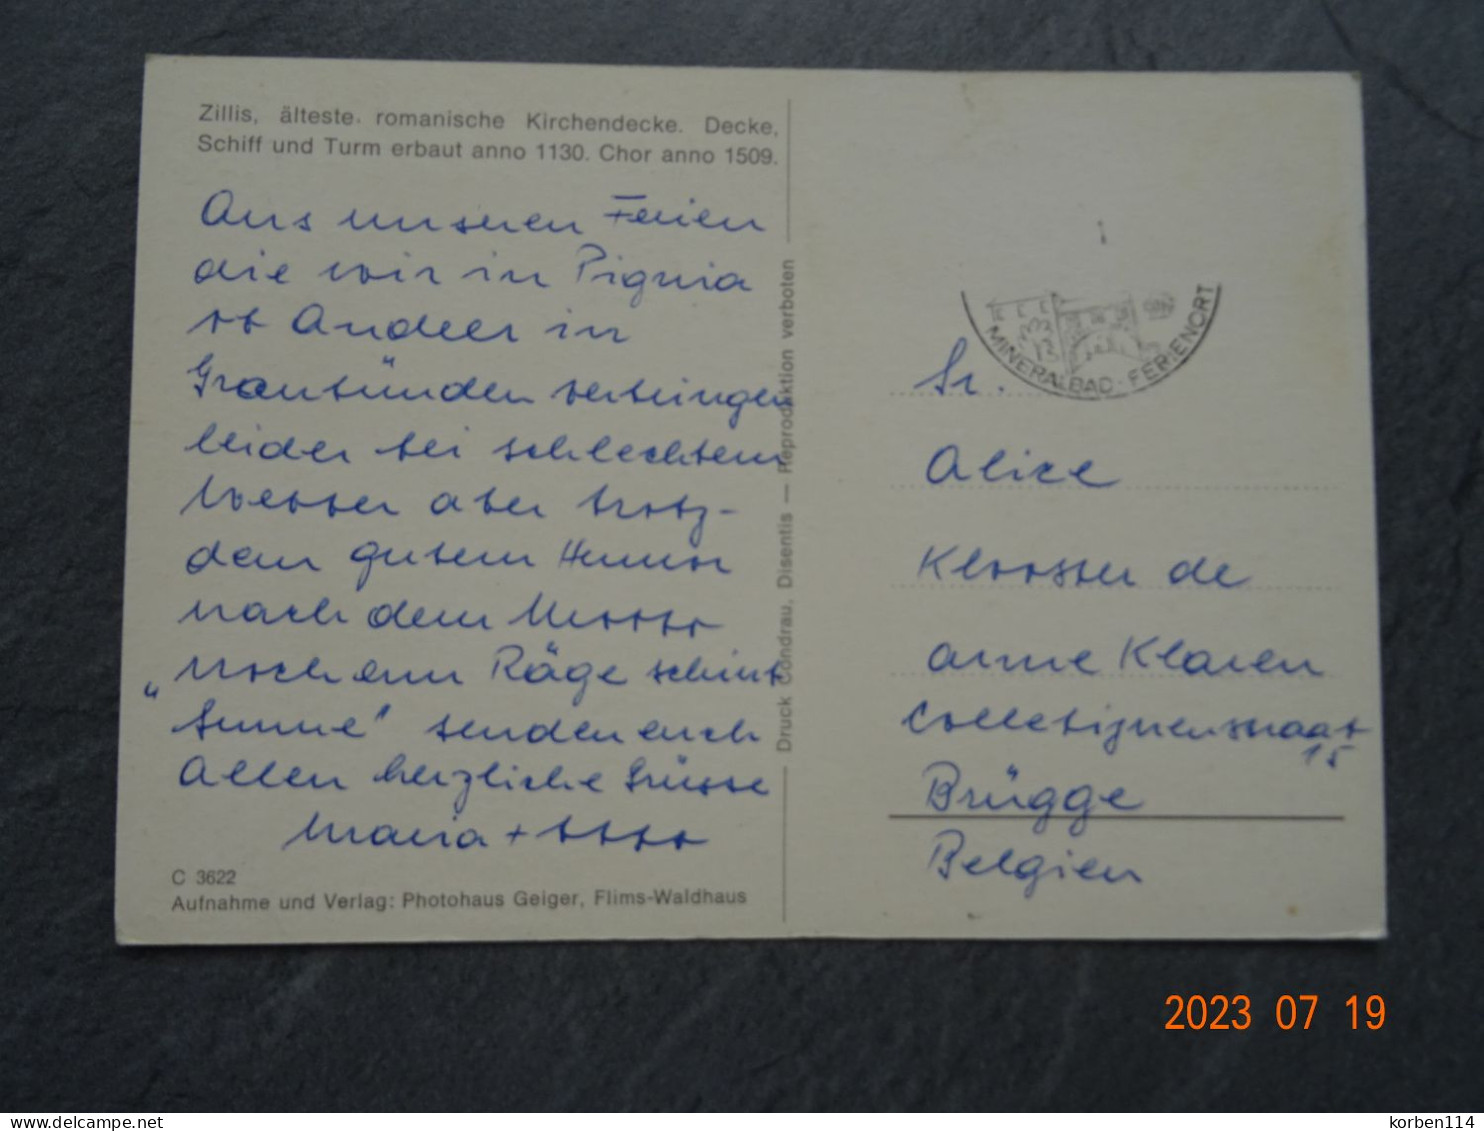 Zillis, älteste romanische Kirchendecke. Decke,
Schiff und Turm erbaut anno 1130. Chor anno 1509.
Aus unseren Ferien
die wir in Pignia
ob Andeer in
Graubünden verbringen
leider bei schlechtem
Wetter aber trotz-
dem gutem Humor
nach dem Motto
„ noch em Räge schint
Sunne" senden euch
Allen herzliche Grüsse
Maria + Otto
C 3622
Aufnahme und Verlag: Photohaus Geiger, Flims-Waldhaus
Druck Condrau, Disentis — Reproduktion verboten
MINERALBAD · FERIENORT
Sr.
Alice
Klooster de
arme Klaren
Colletijnenstraat
15
Brügge
Belgien
2023 07 19
korben114